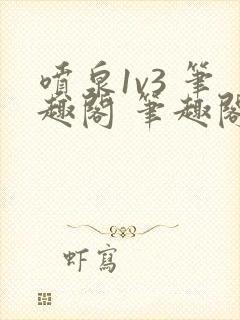 噴泉1v3 筆
趣閣 筆趣閣
虾寫